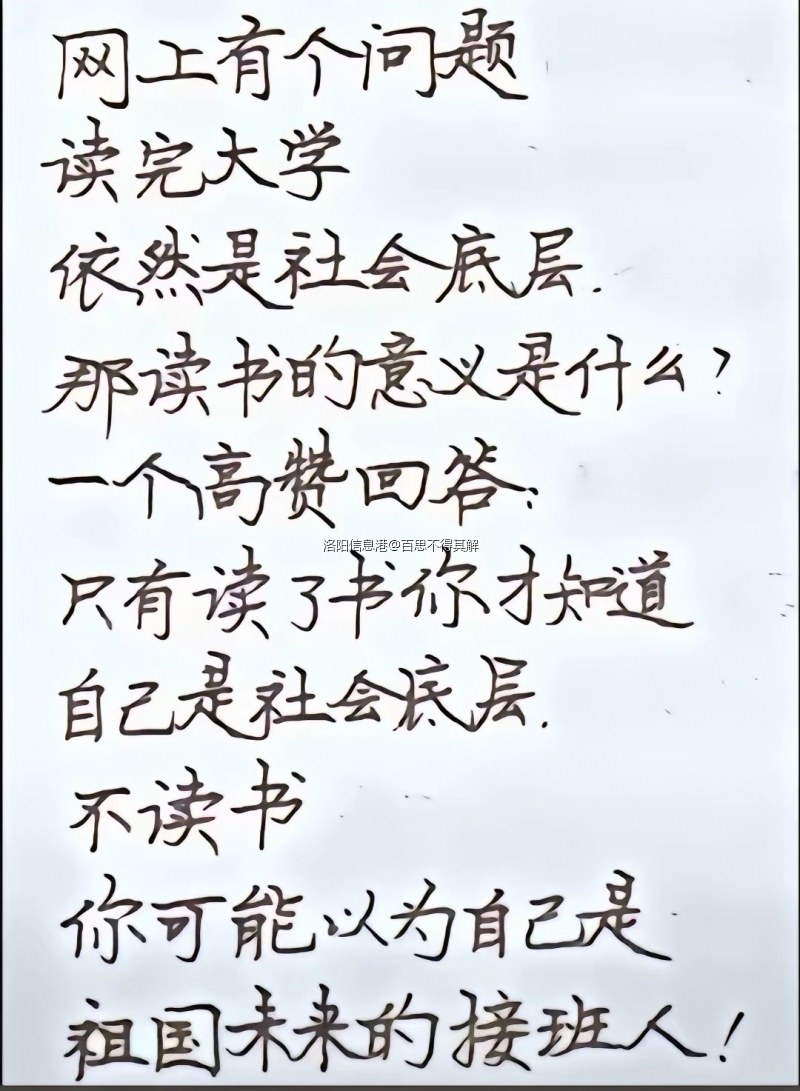 网上有个问题
读完大学
依然是社会底层.
那读书的意义是什么?
一个高赞回答:
洛阳信息港@百思不得其解
只有读了书你才知道
自己是社会底层.
不读书
你可能以为自己是
祖国未来的接班人!